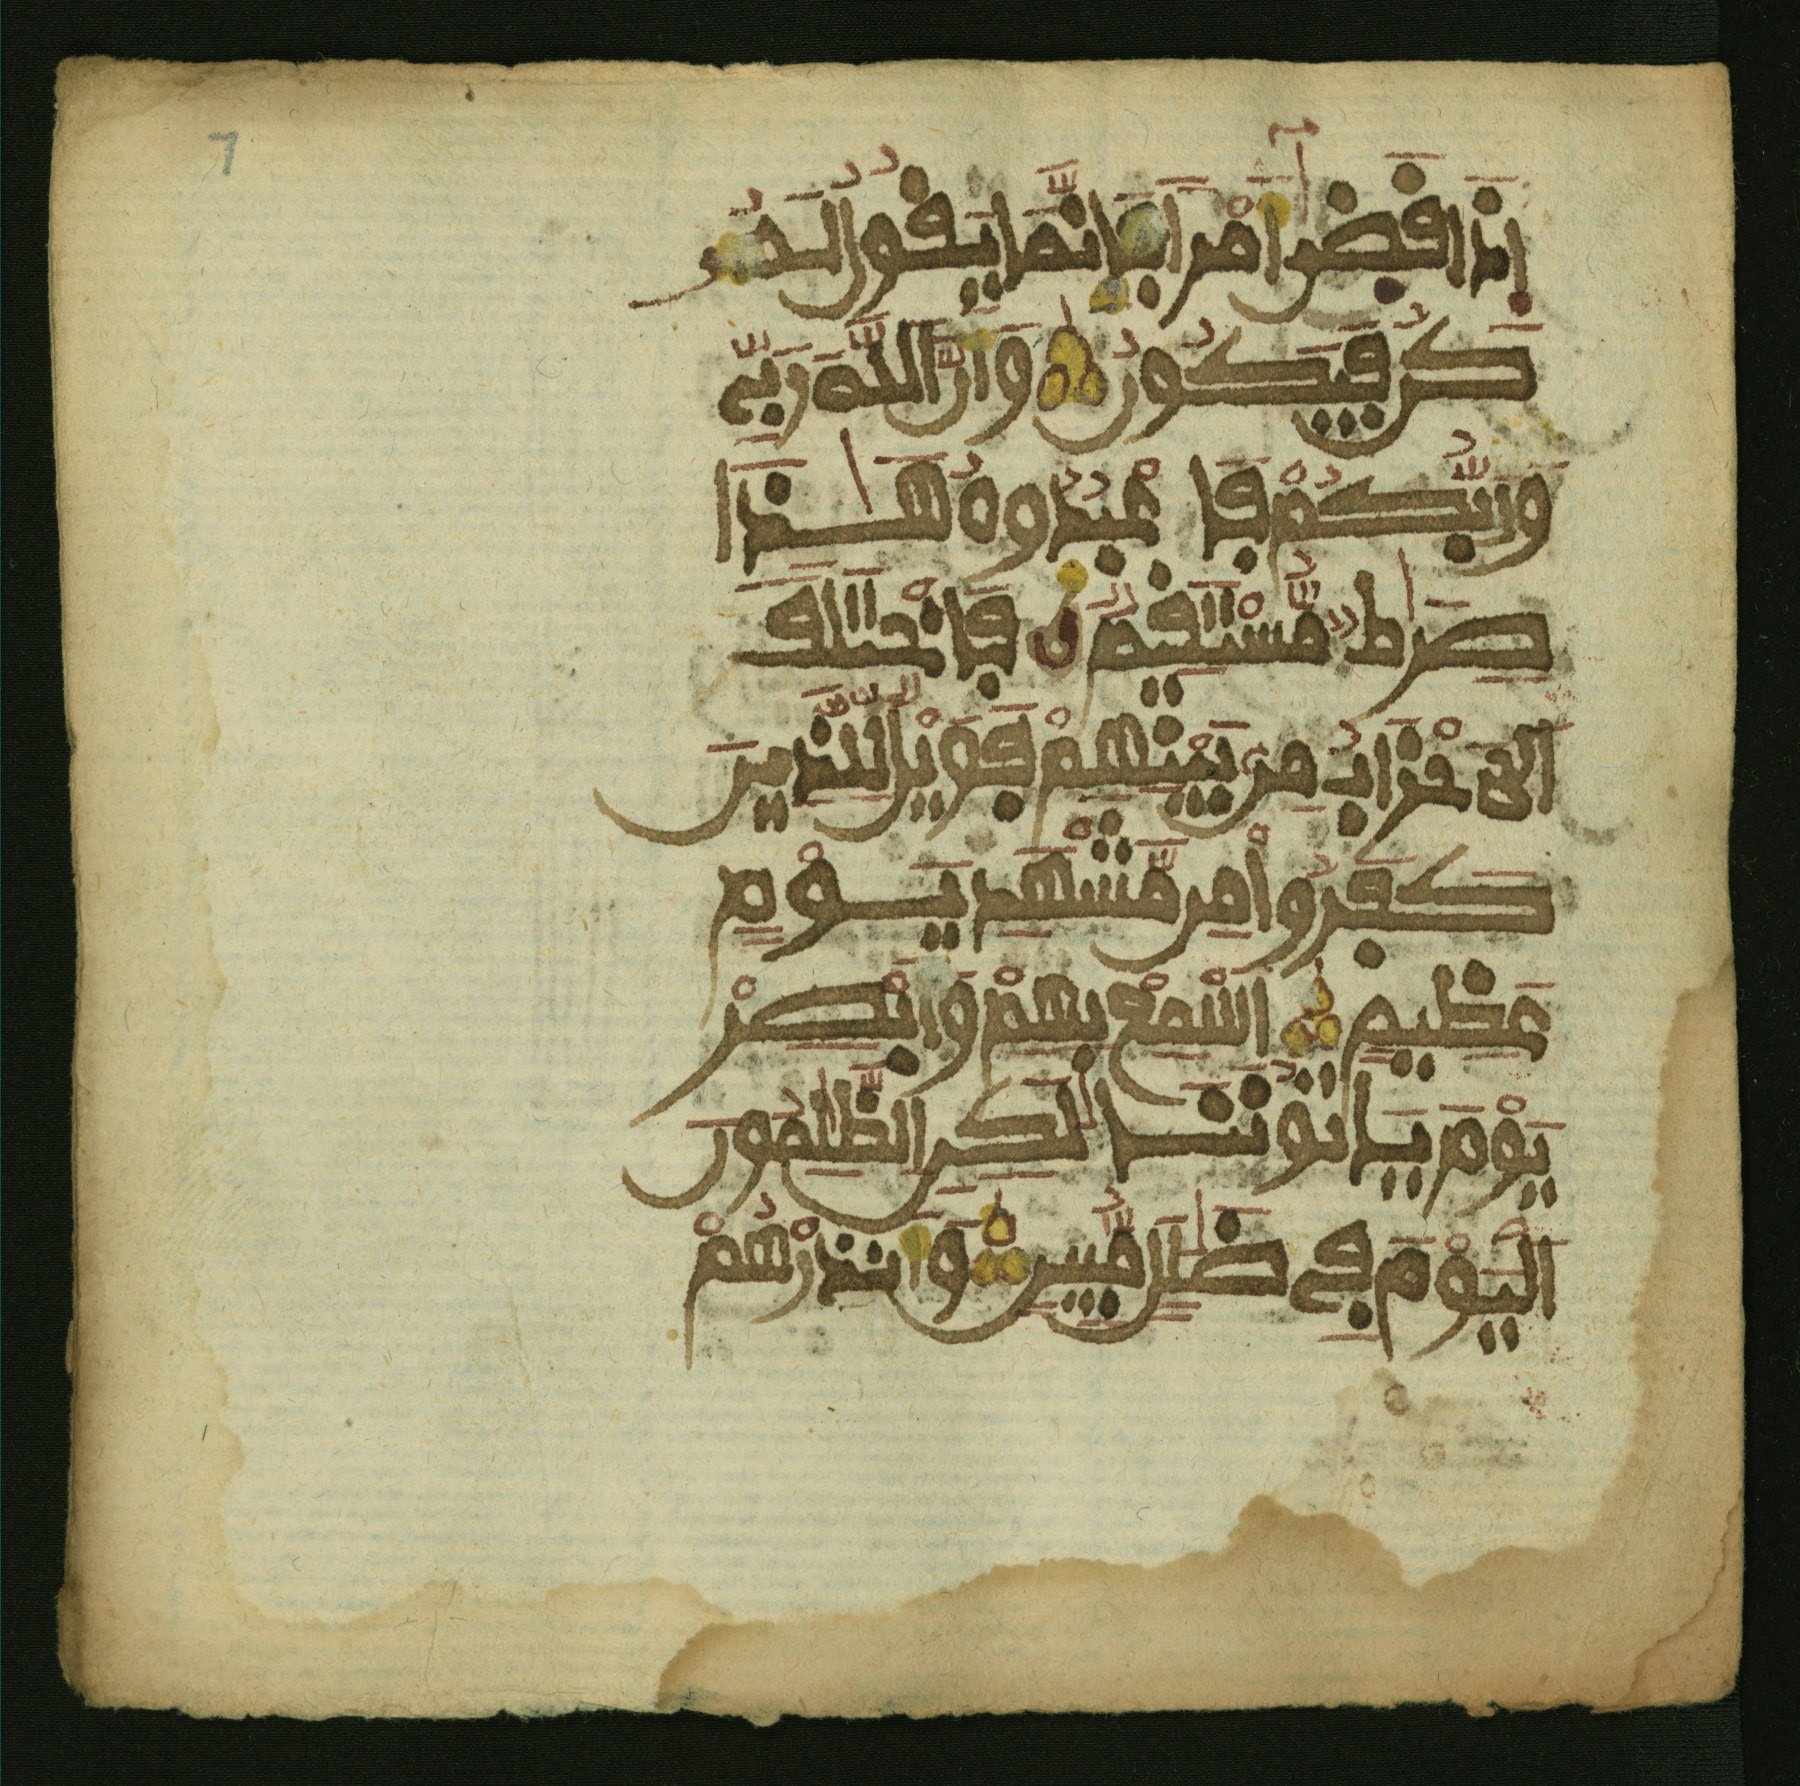 7
إِذَا قَضَىٰ أَمْرًا فَإِنَّمَا يَقُولُ لَهُۥ
كُن فَيَكُونُ وَأَنَّ اللَّهَ رَبِّي
وَرَبُّكُمْ فَاعْبُدُوهُ هَٰذَا
صِرَٰطٌ مُّسْتَقِيمٌ فَاخْتَلَفَ
الْأَحْزَابُ مِن بَيْنِهِمْ فَوَيْلٌ لِّلَّذِينَ
كَفَرُوا مِن مَّشْهَدِ يَوْمٍ
عَظِيمٍ أَسْمِعْ بِهِمْ وَأَبْصِرْ
يَوْمَ يَأْتُونَنَا لَٰكِنِ الظَّٰلِمُونَ
الْيَوْمَ فِي ضَلَٰلٍ مُّبِينٍ وَأَنذِرْهُمْ